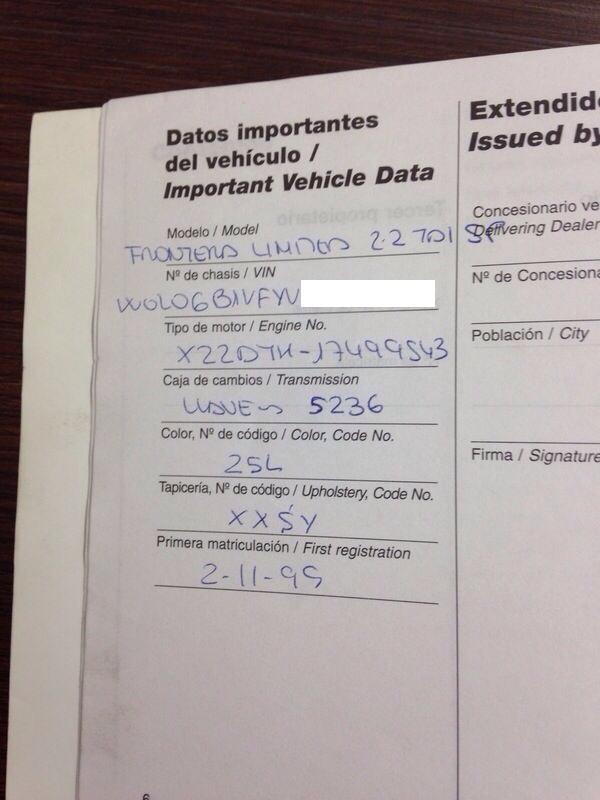 Datos importantes
del vehículo /
Important Vehicle Data
Modelo / Model
FRONTERA LIMITED 2.2 TDI SP
Nº de chasis / VIN
WOLO6B1VFYV
Tipo de motor / Engine No.
X22DTH-17499543
Caja de cambios / Transmission
LLAVES 5236
Color, Nº de código / Color, Code No.
25L
Tapicería, Nº de código / Upholstery, Code No.
XXSY
Primera matriculación / First registration
2-11-99
6
Extendid
Issued by
Concesionario ve
Delivering Dealer
Nº de Concesiona
Población / City
Firma / Signature